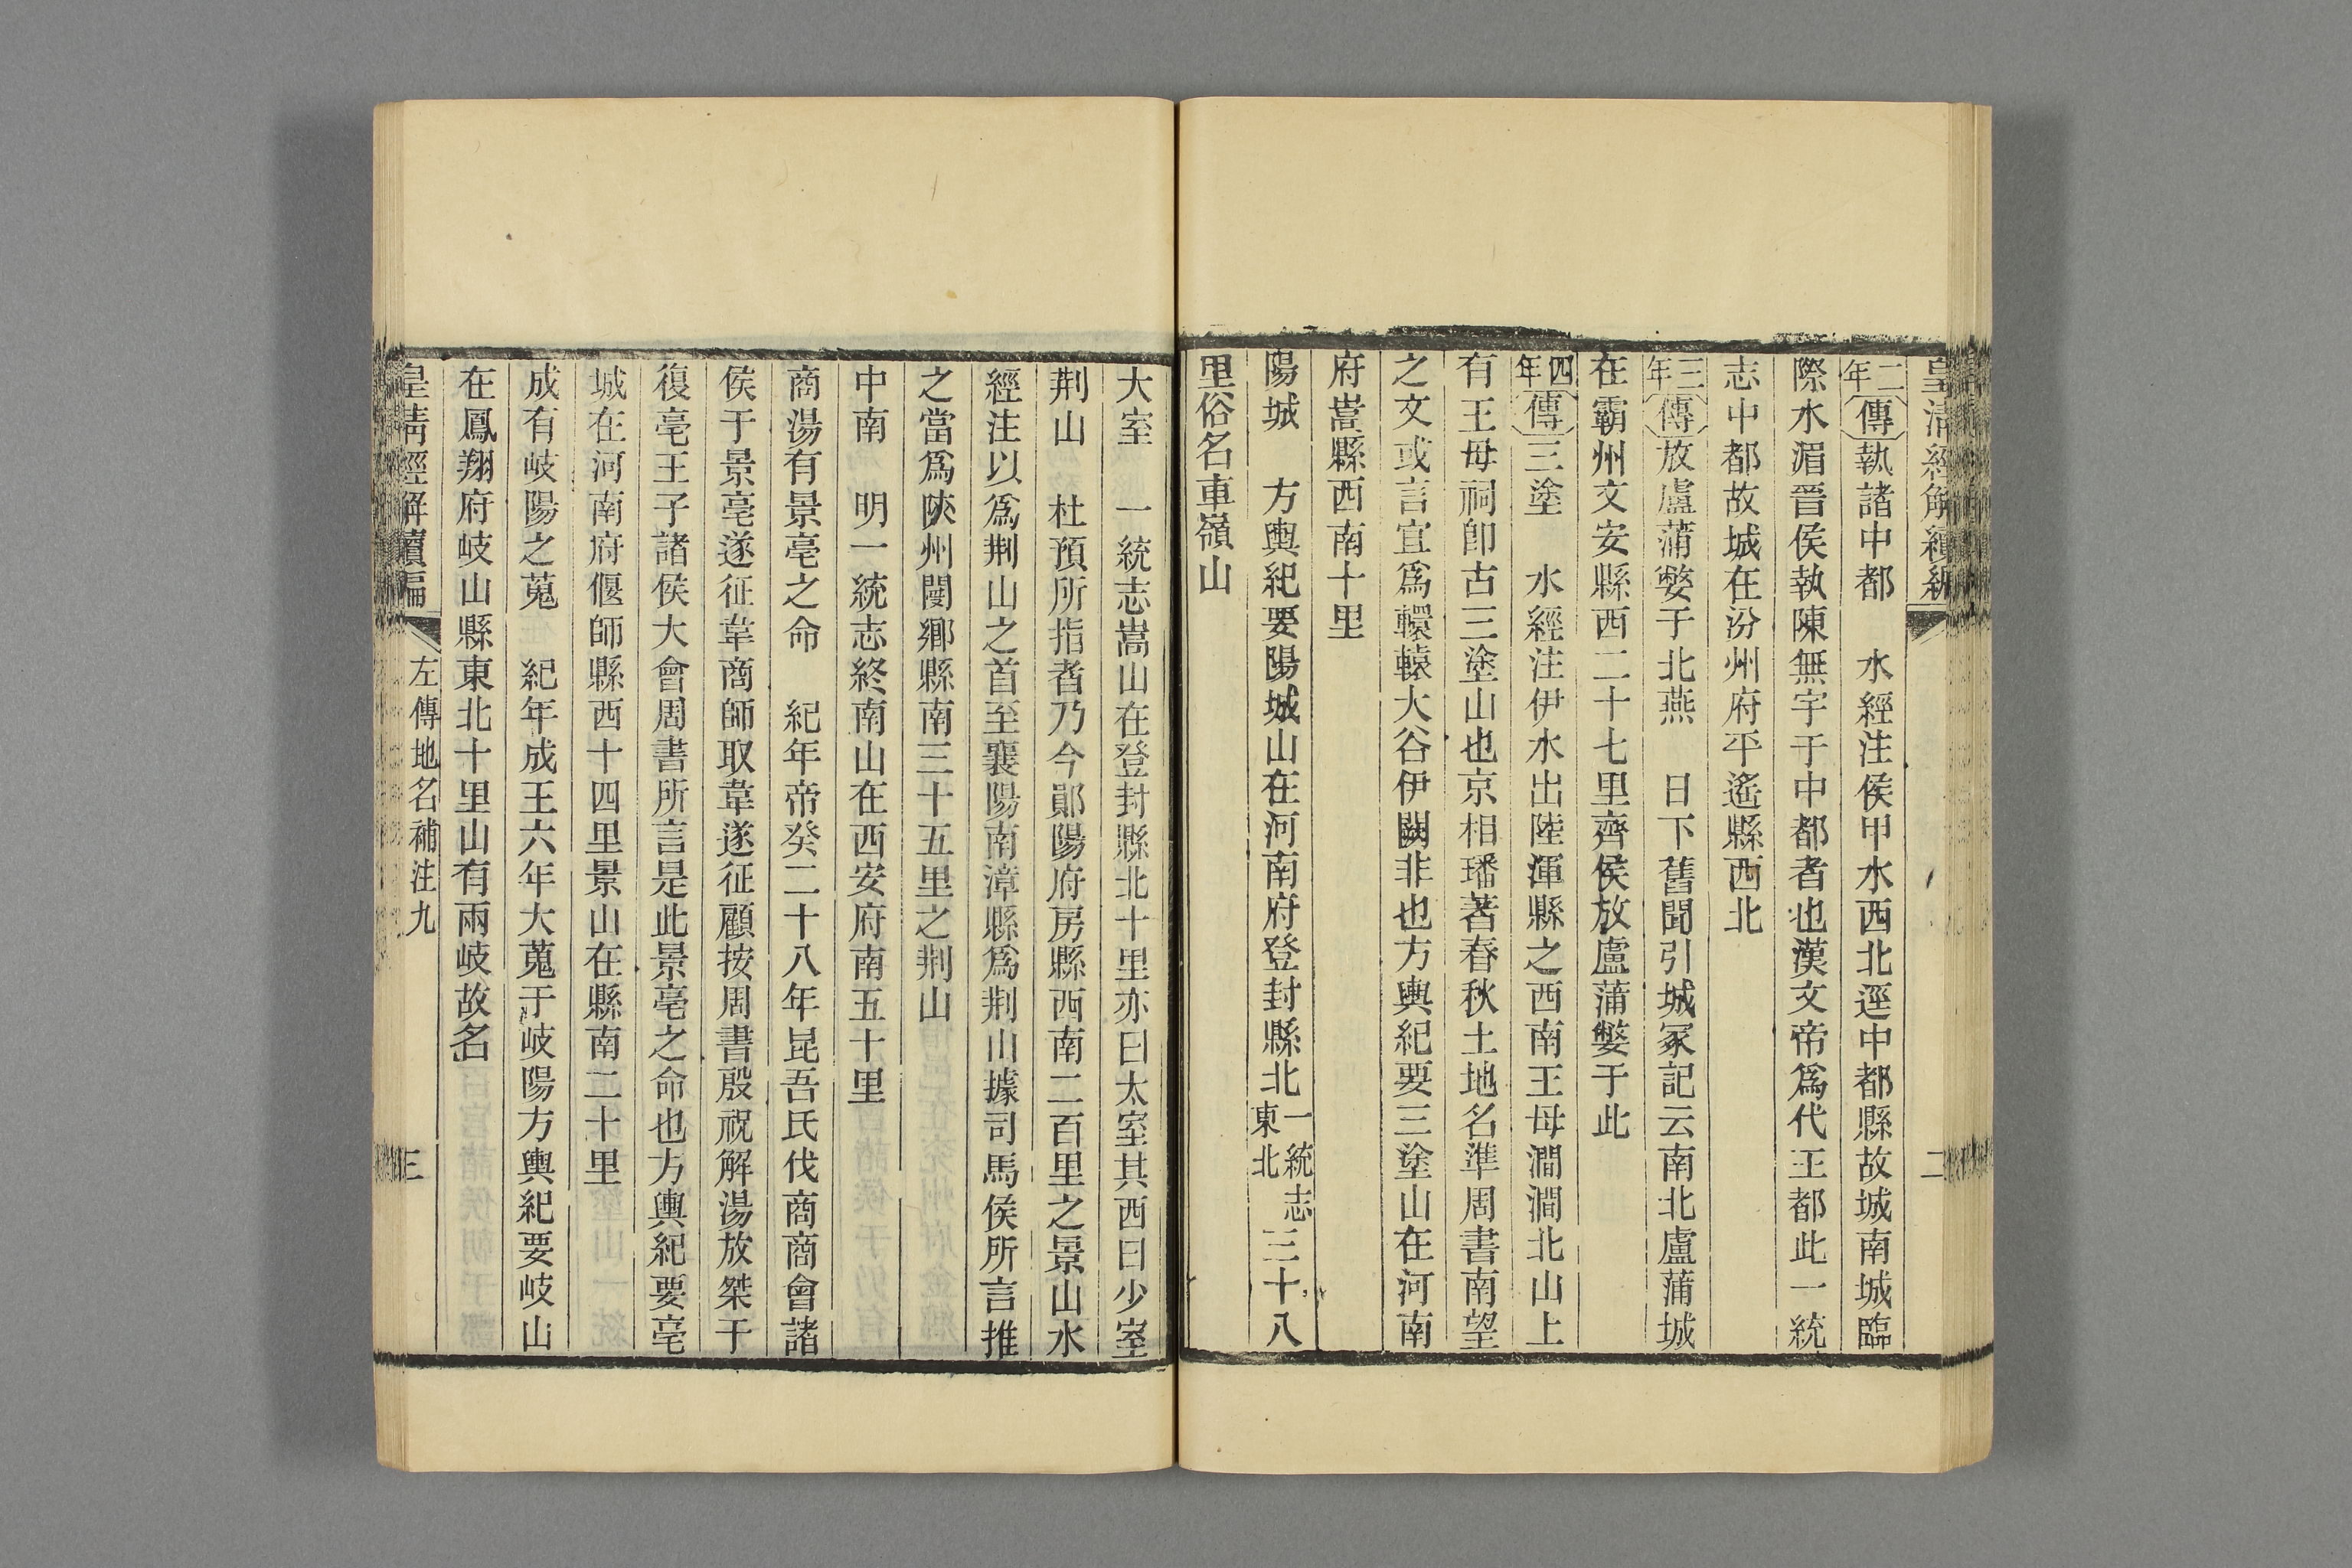 皇清經解續編
二
二年傳執諸中都　水經注侯甲水西北逕中都縣故城南城臨
際水湄晉侯執陳無宇于中都者也漢文帝爲代王都此一統
志中都故城在汾州府平遙縣西北
三年傳放盧蒲嫳于北燕　日下舊聞引城冢記云南北盧蒲城
在霸州文安縣西二十七里齊侯放盧蒲嫳于此
四年傳三塗　水經注伊水出陸渾縣之西南王母澗澗北山上
有王母祠卽古三塗山也京相璠著春秋土地名準周書南望
之文或言宜爲轘轅大谷伊闕非也方輿紀要三塗山在河南
府嵩縣西南十里
陽城　方輿紀要陽城山在河南府登封縣北一統志東北三十八
里俗名車嶺山
大室　一統志嵩山在登封縣北十里亦曰太室其西曰少室
荆山　杜預所指者乃今鄖陽府房縣西南二百里之景山水
經注以爲荆山之首至襄陽南漳縣爲荆山據司馬侯所言推
之當爲陝州閿鄉縣南三十五里之荆山
中南　明一統志終南山在西安府南五十里
商湯有景亳之命　紀年帝癸二十八年昆吾氏伐商商會諸
侯于景亳遂征韋商師取韋遂征顧按周書殷祝解湯放桀于
復亳王子諸侯大會周書所言是此景亳之命也方輿紀要亳
城在河南府偃師縣西十四里景山在縣南二十里
成有岐陽之蒐　紀年成王六年大蒐于岐陽方輿紀要岐山
在鳳翔府岐山縣東北十里山有兩岐故名
皇清經解續編
左傳地名補注九
三